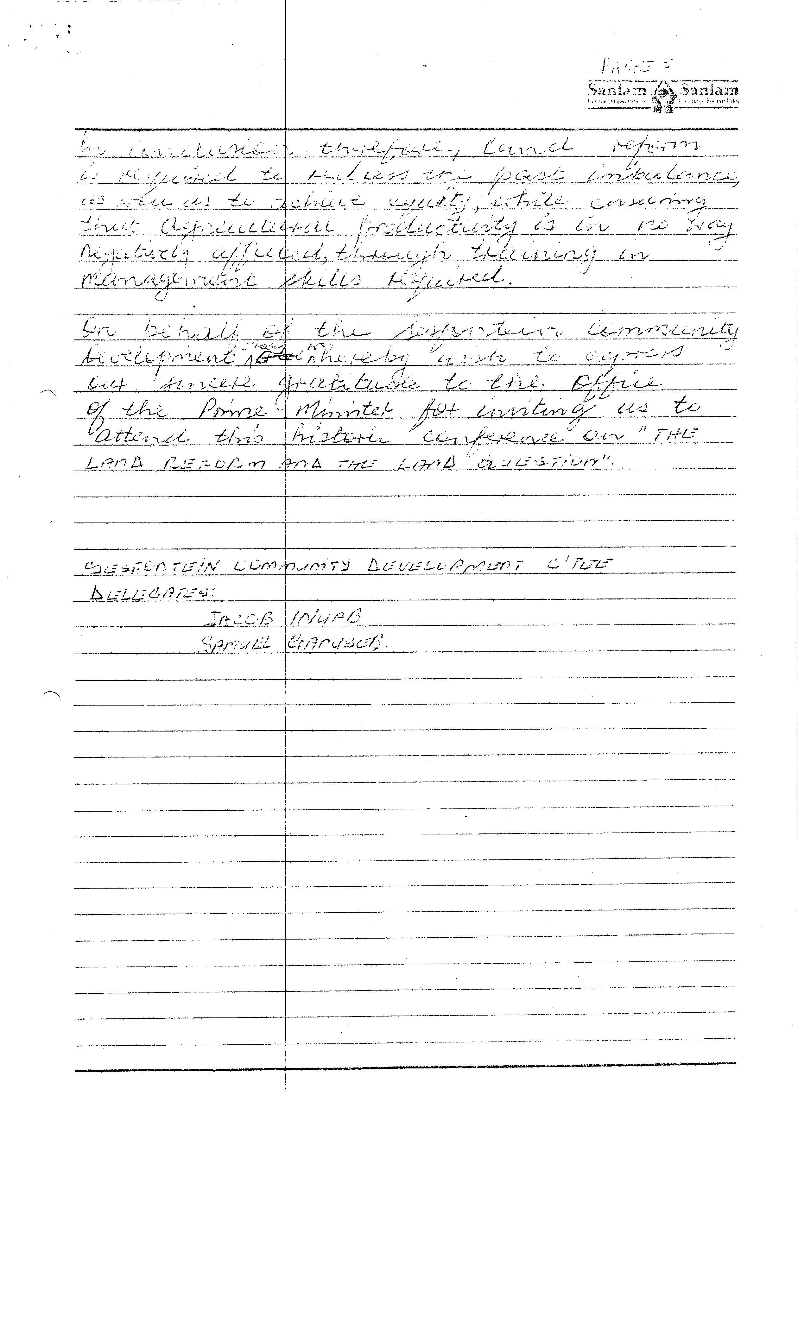 PAGE 5
Sanlam Sanlam
In conclusion therefore, land reform
is required to redress the past imbalance,
as well as to achieve equity, while ensuring
that Agricultural productivity is in no way
negatively affected, through training in
management skills required.
On behalf of the Sesfontein Community
Development hereby wish to express
our sincere gratitude to the Office
of the Prime Minister for inviting us to
attend this historic conference on "THE
LAND REFORM AND THE LAND QUESTION".
SESFONTEIN COMMUNITY DEVELOPMENT C'TEE
DELEGATES:
JACOB
SAMUEL